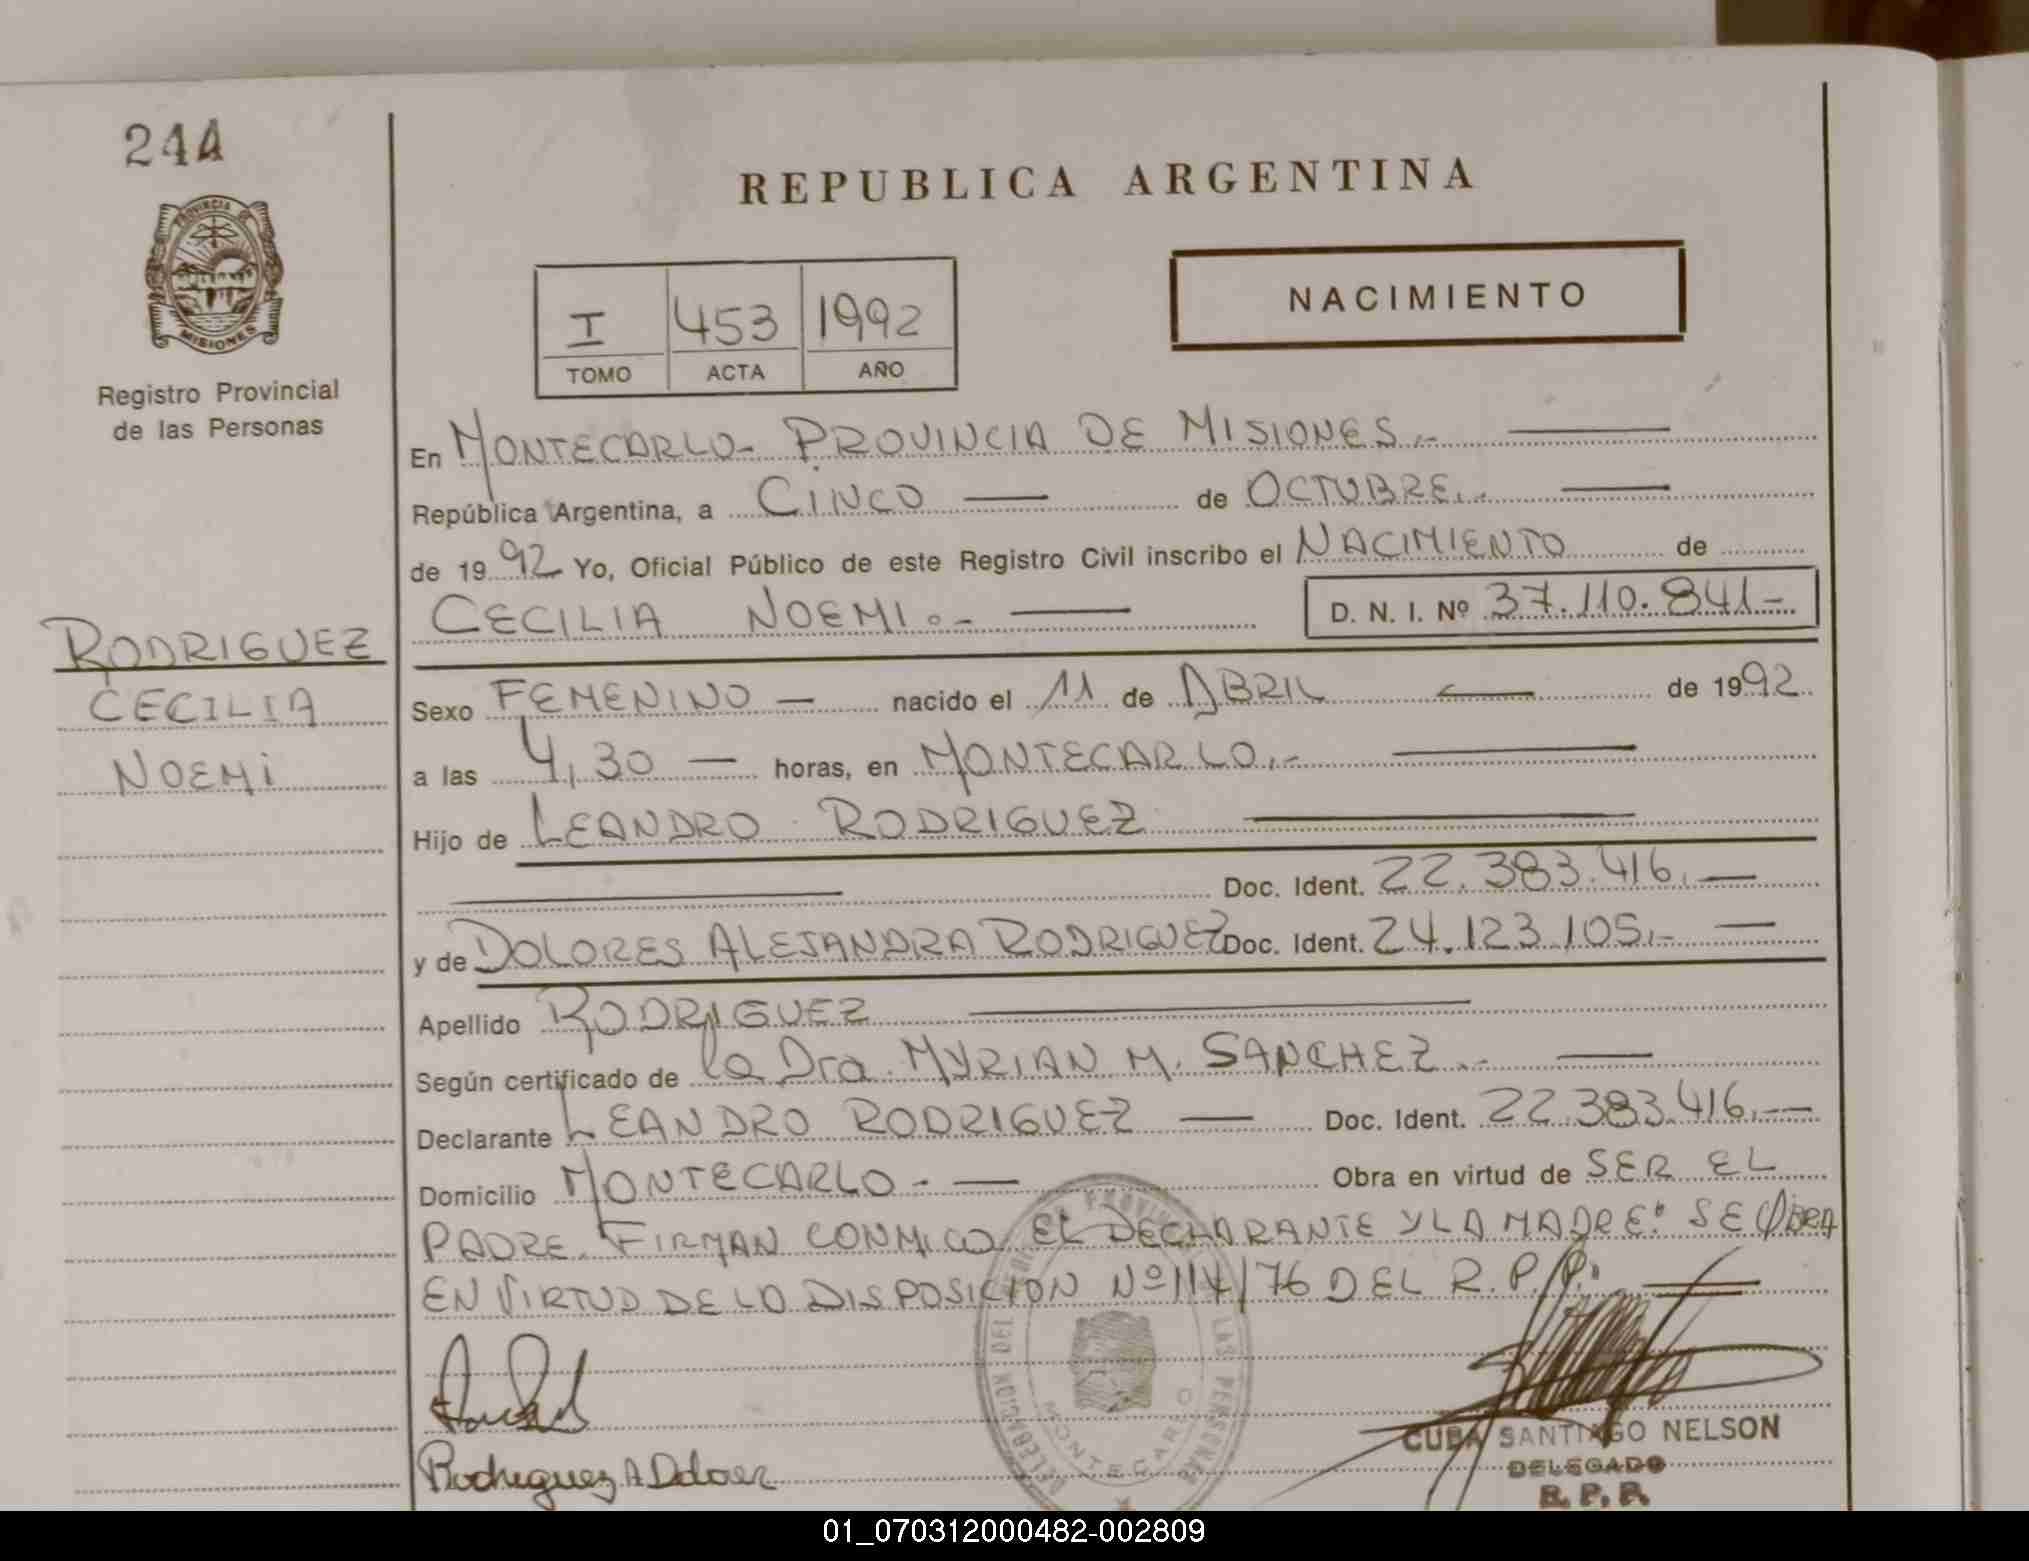 244
REPUBLICA ARGENTINA
PROVINCIA DE
MISIONES
Registro Provincial
de las Personas
I 453 1992
TOMO ACTA AÑO
NACIMIENTO
En MONTECARLO- PROVINCIA DE MISIONES.-
República Argentina, a CINCO de OCTUBRE.-
de 1992 Yo, Oficial Público de este Registro Civil inscribo el NACIMIENTO de
CECILIA NOEMI.- D. N. I. Nº 37.110.841-
RODRIGUEZ
CECILIA
NOEMI
Sexo FEMENINO — nacido el 11 de ABRIL de 1992
a las 4,30 — horas, en MONTECARLO.-
Hijo de LEANDRO RODRIGUEZ
Doc. Ident. 22.383.416.—
y de DOLORES ALEJANDRA RODRIGUEZ Doc. Ident. 24.123.105.- —
Apellido RODRIGUEZ
Según certificado de la Dra. MYRIAN M. SANCHEZ.-
Declarante LEANDRO RODRIGUEZ — Doc. Ident. 22.383.416.--
Domicilio MONTECARLO.- — Obra en virtud de SER EL
PADRE. FIRMAN CONMIGO EL DECLARANTE Y LA MADRE: SE OBRA
EN VIRTUD DE LO DISPOSICION Nº 114/76 DEL R.P.P.
Rodriguez A Dolores
DELEGACION DEL LAS PERSONAS
MONTECARLO
CUBA SANTIAGO NELSON
DELEGADO
R. P. P.
01_070312000482-002809